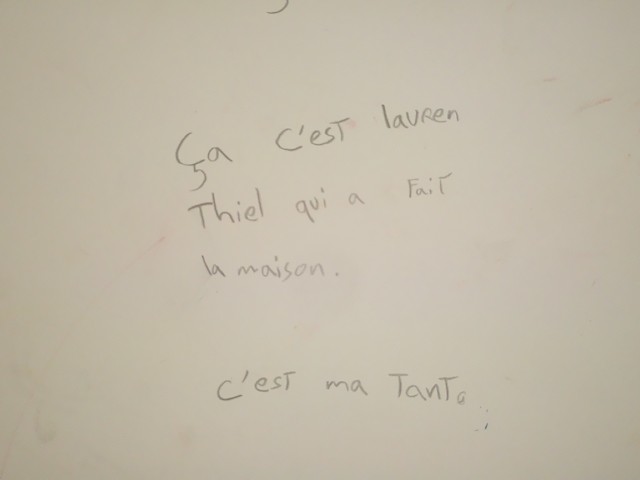 Ça c'est lauren
Thiel qui a fait
la maison.
c'est ma Tanta